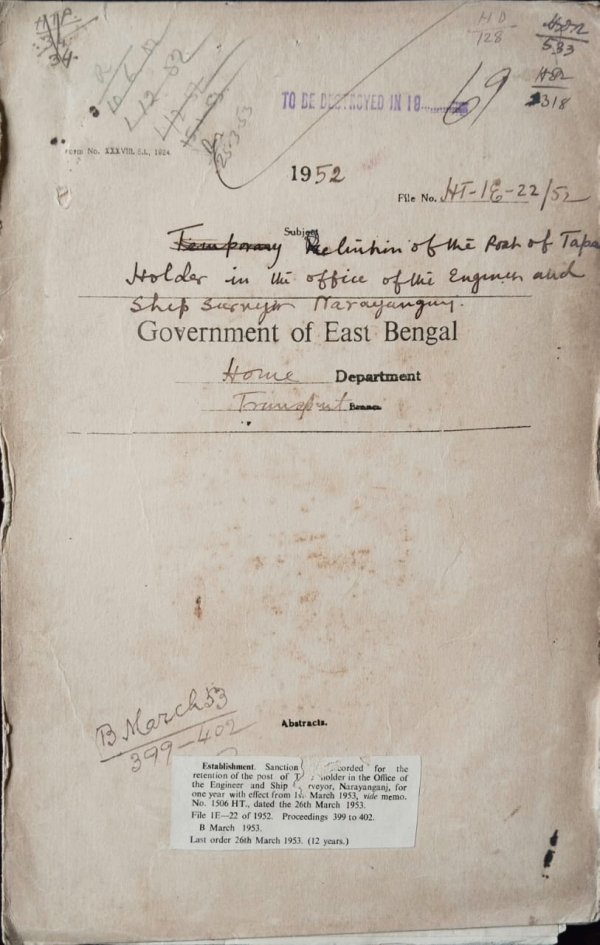 H D
128
HD2
533
HD2
318
34
10-6-52
1-12-52
25-3-53
TO BE DESTROYED IN 19........69
Form No. XXXVIII. E.I., 1924.
1952
File No. HT-1E-22/52
Subject
Temporary Retention of the Post of Tape
Holder in the office of the Engineer and
Ship Surveyor Narayangunj.
Government of East Bengal
Home Department
Transport Branch
B March 53
399-402
Abstracts.
Establishment. Sanction corded for the
retention of the post of T holder in the Office of
the Engineer and Ship rveyor, Narayanganj, for
one year with effect from 1st March 1953, vide memo.
No. 1506 HT., dated the 26th March 1953.
File 1E—22 of 1952. Proceedings 399 to 402.
B March 1953.
Last order 26th March 1953. (12 years.)